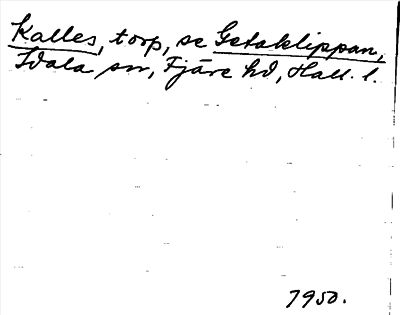 Kalles, torp, se Getaklippan,
Idala sn, Fjäre hd, Hall. l.
1950.